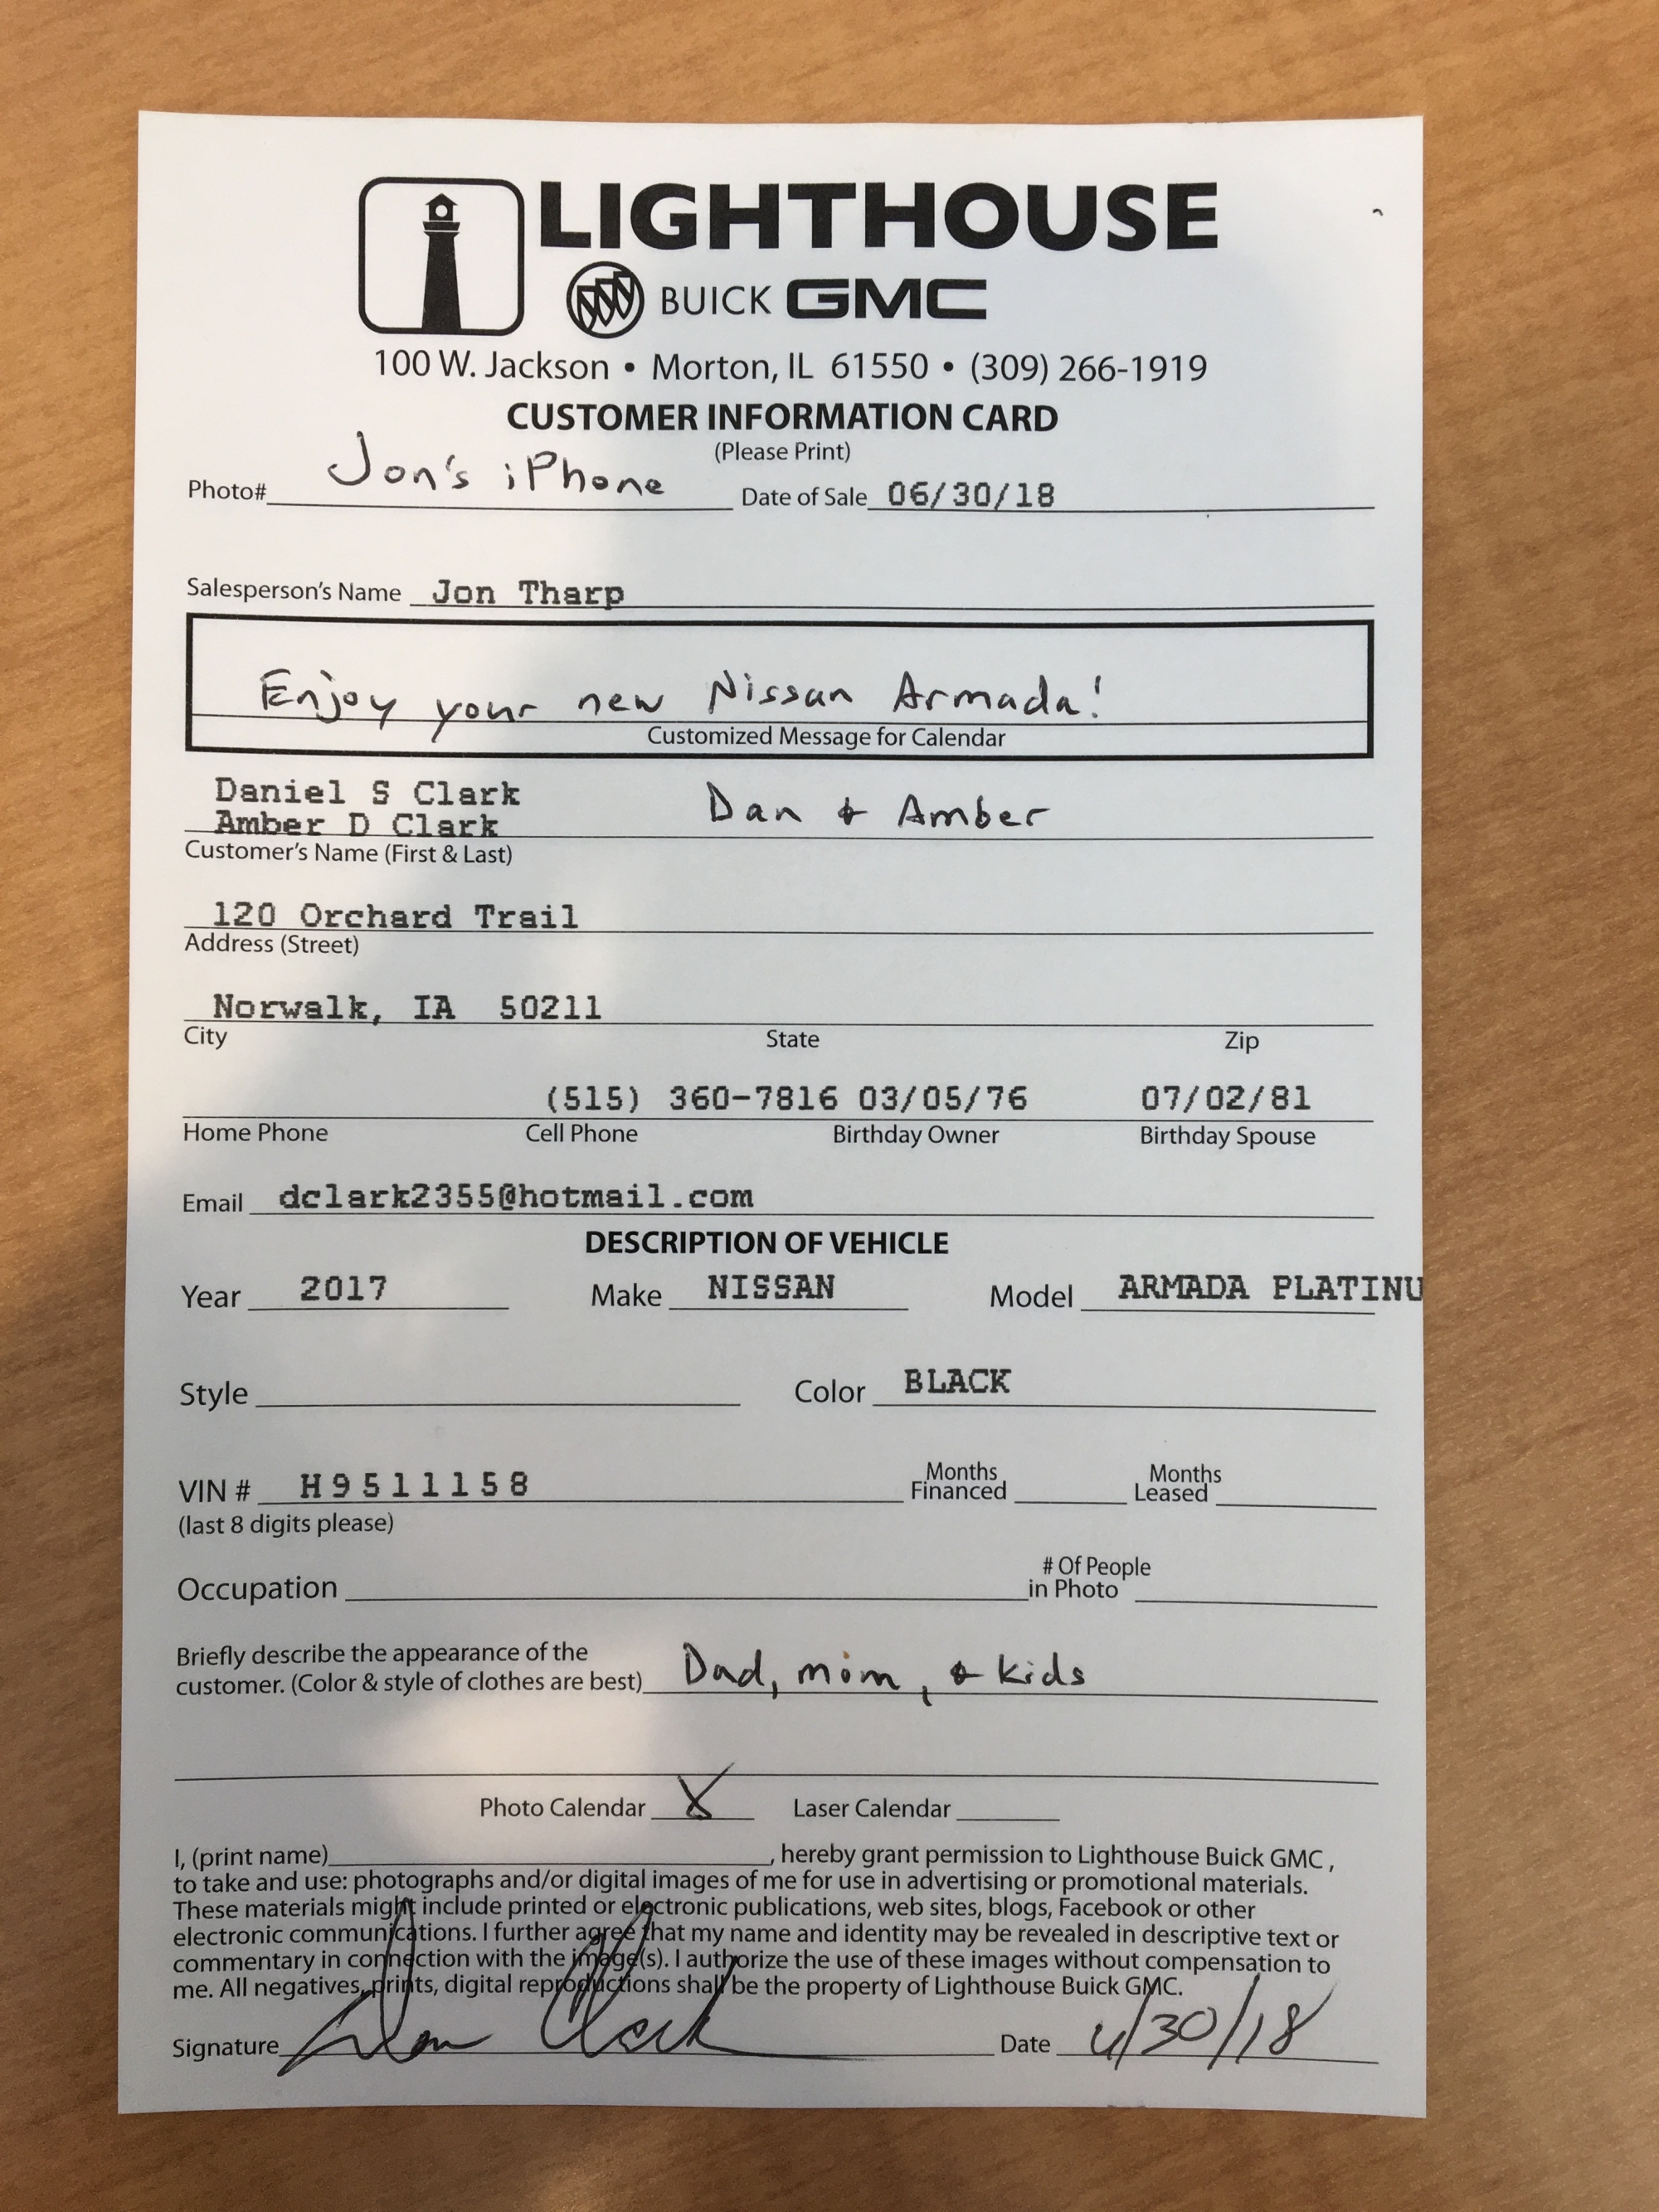 LIGHTHOUSE
BUICK GMC
100 W. Jackson • Morton, IL 61550 • (309) 266-1919
CUSTOMER INFORMATION CARD
(Please Print)
Photo# Jon's iPhone Date of Sale 06/30/18
Salesperson's Name Jon Tharp
Enjoy your new Nissan Armada!
Customized Message for Calendar
Daniel S Clark
Amber D Clark Dan & Amber
Customer's Name (First & Last)
120 Orchard Trail
Address (Street)
Norwalk, IA 50211
City State Zip
(515) 360-7816 03/05/76 07/02/81
Home Phone Cell Phone Birthday Owner Birthday Spouse
Email dclark2355@hotmail.com
DESCRIPTION OF VEHICLE
Year 2017 Make NISSAN Model ARMADA PLATINU
Style Color BLACK
VIN # H9511158 Months Financed Months Leased
(last 8 digits please)
Occupation # Of People in Photo
Briefly describe the appearance of the
customer. (Color & style of clothes are best) Dad, mom, & kids
Photo Calendar X Laser Calendar
I, (print name) , hereby grant permission to Lighthouse Buick GMC,
to take and use: photographs and/or digital images of me for use in advertising or promotional materials.
These materials might include printed or electronic publications, web sites, blogs, Facebook or other
electronic communications. I further agree that my name and identity may be revealed in descriptive text or
commentary in connection with the image(s). I authorize the use of these images without compensation to
me. All negatives, prints, digital reproductions shall be the property of Lighthouse Buick GMC.
Signature Dan Clark Date 6/30/18